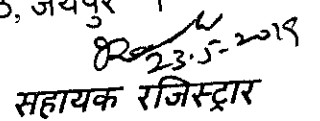 , जयपुर ।
23.5-2019
सहायक रजिस्ट्रार